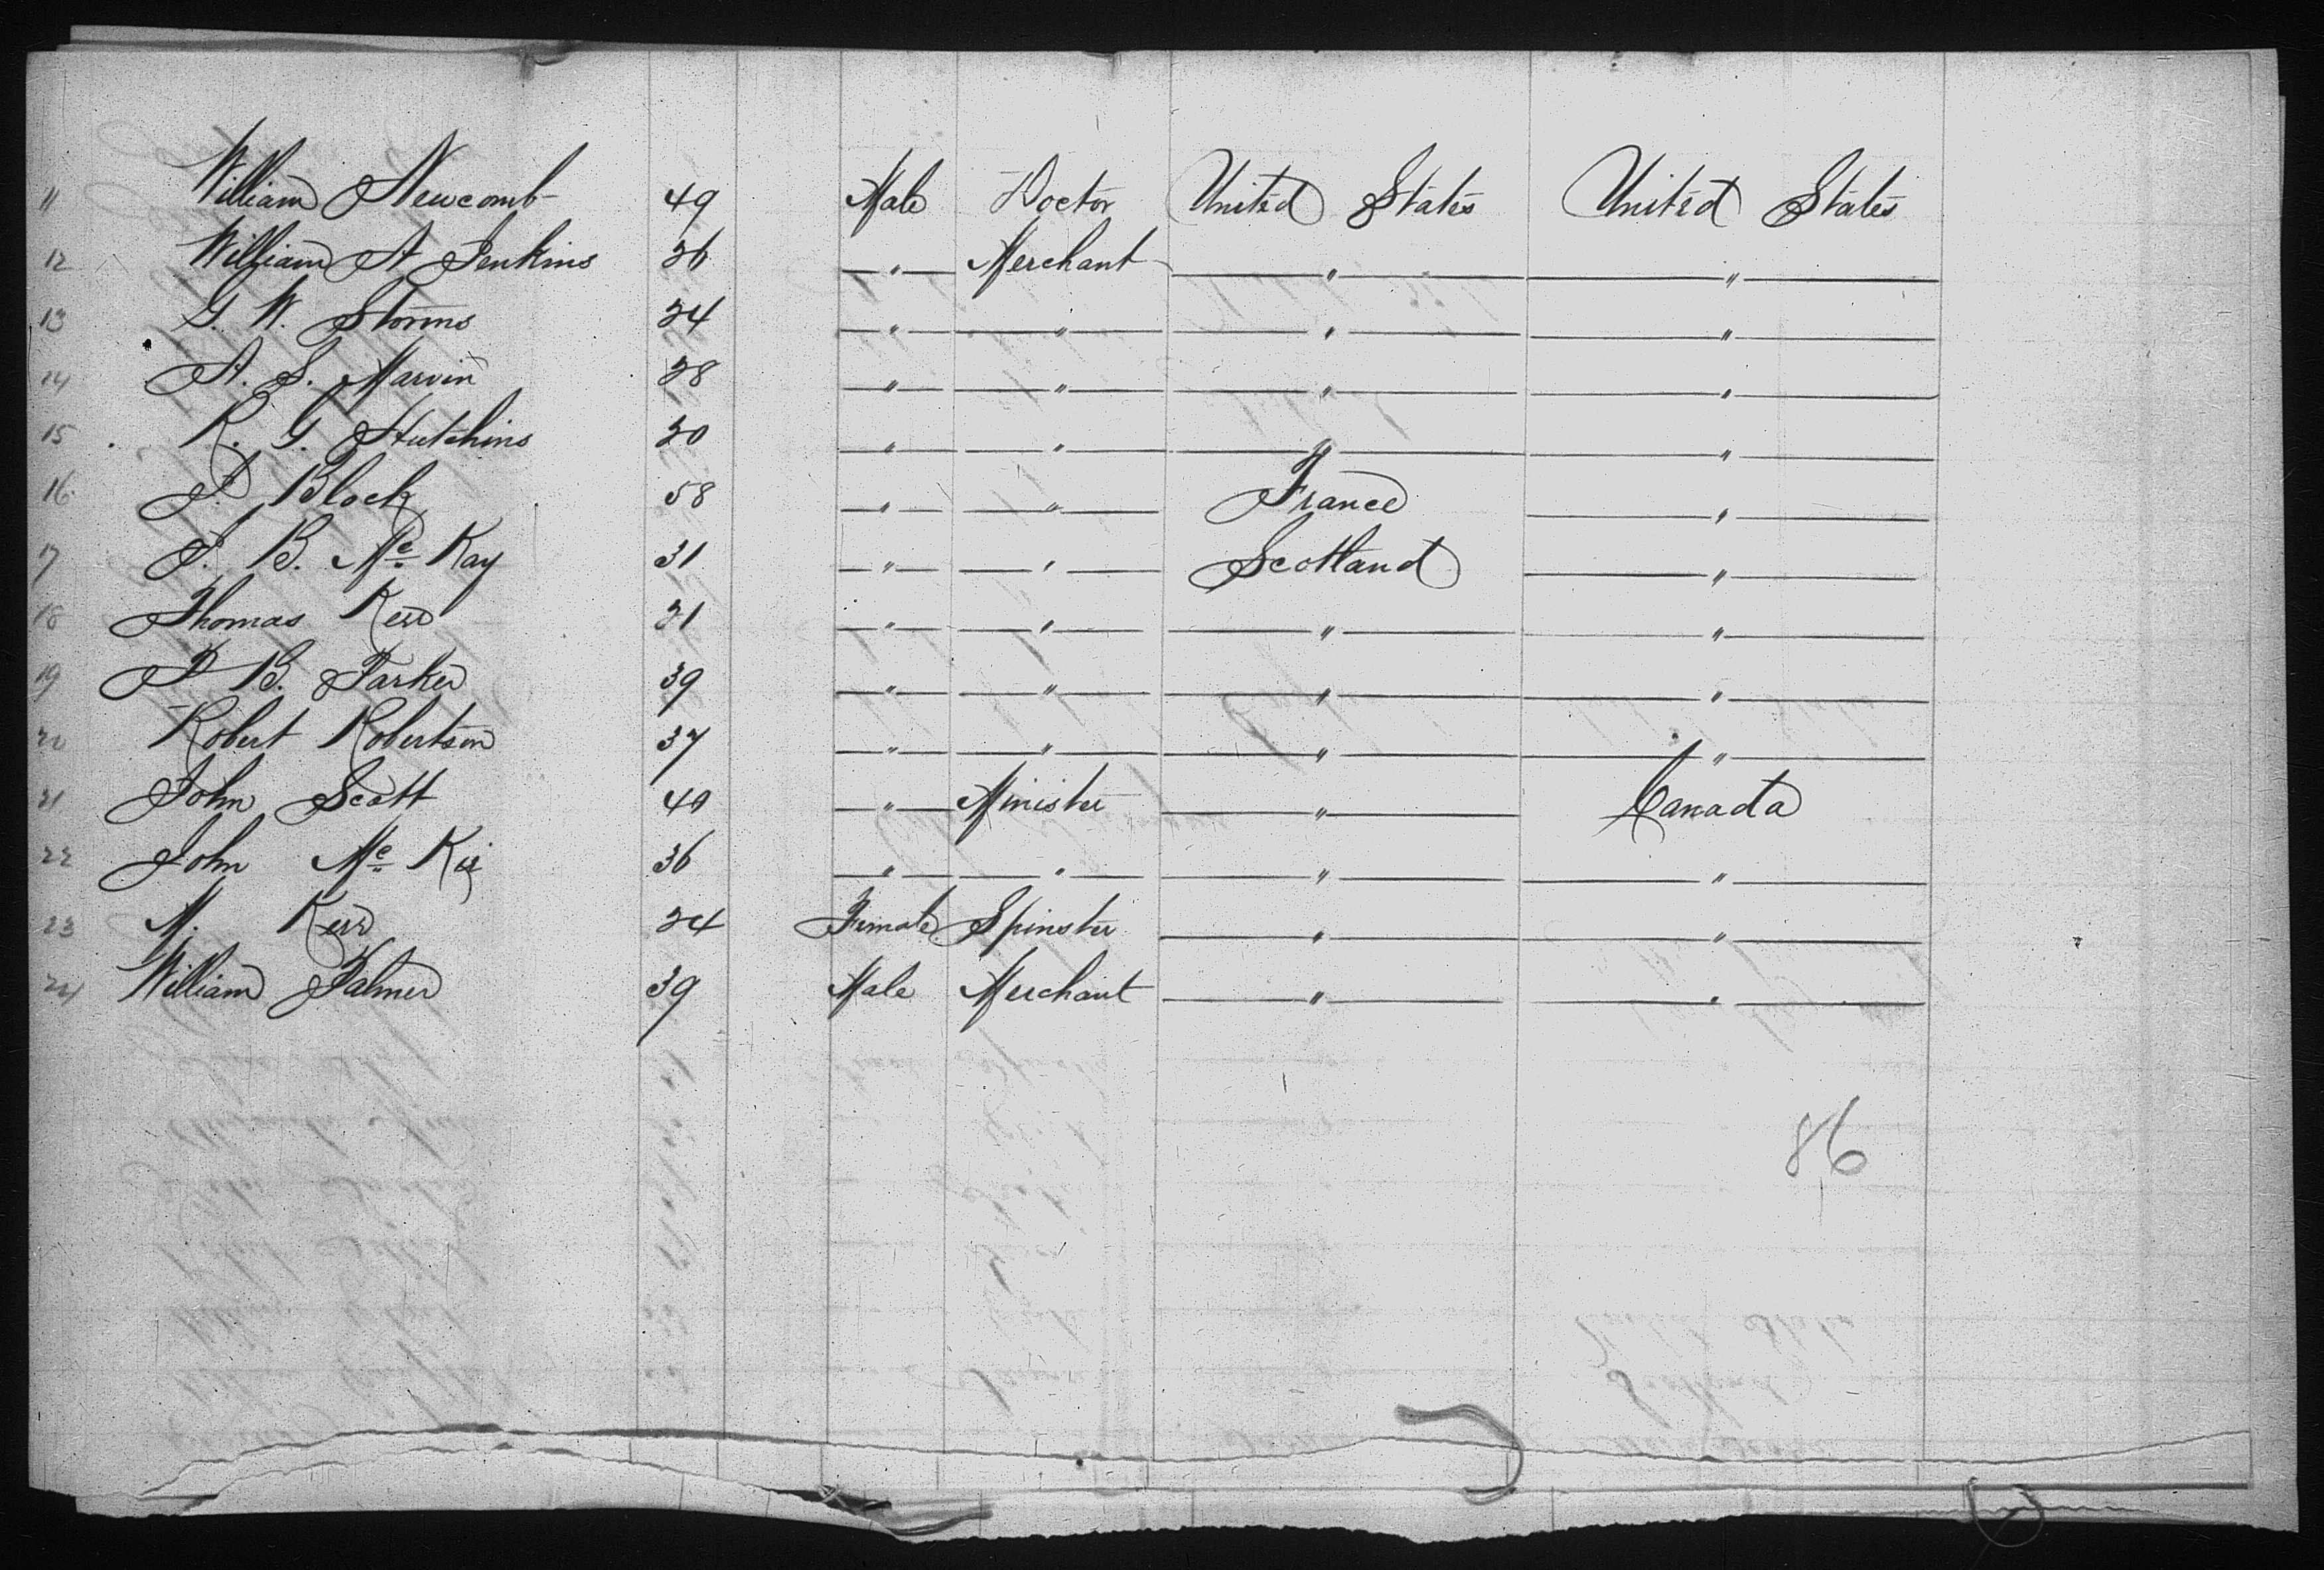 11 William Newcomb 49 Male Doctor United States United States
12 William A Jenkins 26 " Merchant " "
13 G. W. Storms 24 " " " "
14 A. S. Marvin 28 " " " "
15 R. G. Hutchins 20 " " " "
16 Block 58 " " France "
17 B. Mc Kay 31 " " Scotland "
18 Thomas Kerr 21 " " " "
19 B. Parker 39 " " " "
20 Robert Robertson 37 " " " "
21 John Scott 40 " Minister " Canada
22 John Mc 36 " " " "
23 M. Kerr 24 Female Spinster " "
24 William Palmer 39 Male Merchant " "
86